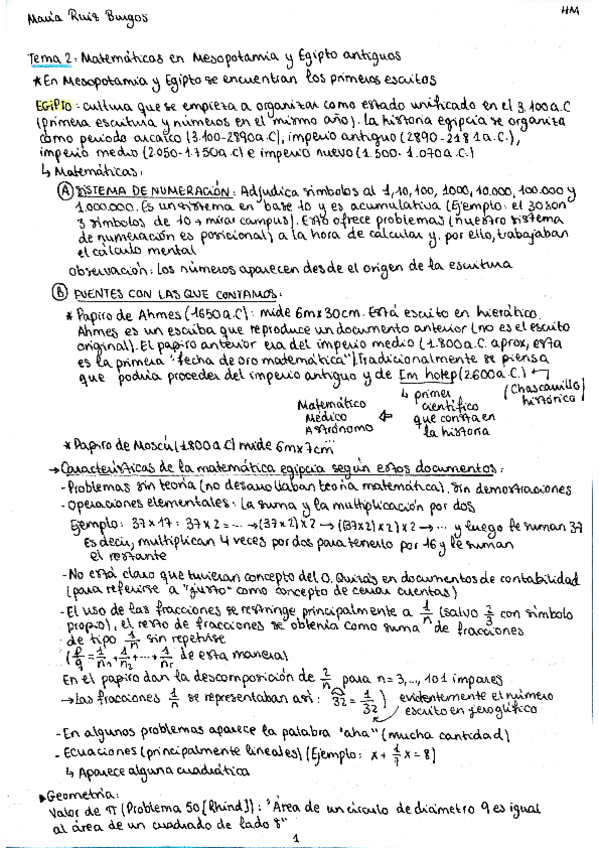 María Ruiz Burgos
HM
Tema 2: Matemáticas en Mesopotamia y Egipto antiguos
* En Mesopotamia y Egipto se encuentran los primeros escritos
EGIPTO: cultura que se empieza a organizar como estado unificado en el 3.100 a.C
(primera escritura y números en el mismo año). La historia egipcia se organiza
como periodo arcaico (3.100-2890 a.C), imperio antiguo (2890-2181 a.C.),
imperio medio (2.050-1.750 a.C) e imperio nuevo (1.500-1.070 a.C.)
↳ Matemáticas:
Ⓐ SISTEMA DE NUMERACIÓN: Adjudica símbolos al 1, 10, 100, 1000, 10.000, 100.000 y
1.000.000. Es un sistema en base 10 y es acumulativa (Ejemplo: el 30 son
3 símbolos de 10 → mirar campus). Esto ofrece problemas (nuestro sistema
de numeración es posicional) a la hora de calcular y, por ello, trabajaban
el cálculo mental
Observación: Los números aparecen desde el origen de la escritura
Ⓑ FUENTES CON LAS QUE CONTAMOS:
* Papiro de Ahmes (1650 a.C): mide 6m x 30cm. Está escrito en hierático.
Ahmes es un escriba que reproduce un documento anterior (no es el escrito
original). El papiro anterior era del imperio medio (1.800 a.C. aprox, esta
es la primera "fecha de oro matemática"). Tradicionalmente se piensa
que podría proceder del imperio antiguo y de Im hotep (2.600 a.C.)
(Chascarrillo histórico)
↳ primer científico que consta en la historia
⇐ Matemático Médico Astrónomo
* Papiro de Moscú (1800 a.C) mide 6m x 7cm
→ Características de la matemática egipcia según estos documentos:
- Problemas sin teoría (no desarrollaban teoría matemática). Sin demostraciones
- Operaciones elementales: La suma y la multiplicación por dos
Ejemplo: 37 x 17: 37 x 2 = ... → (37x2) x 2 → ((37x2)x2) x 2 → ... y luego le suman 37
Es decir, multiplican 4 veces por dos para tenerlo por 16 y le suman
el restante
- No está claro que tuvieran concepto del 0. Quizás en documentos de contabilidad
(para referirse a "justo" como concepto de cerrar cuentas)
- El uso de las fracciones se restringe principalmente a 1/n (salvo 2/3 con símbolo
propio), el resto de fracciones se obtenía como suma de fracciones
de tipo 1/n sin repetirse
(p/q = 1/n₁ + 1/n₂ + ... + 1/nᵣ de esta manera)
En el papiro dan la descomposición de 2/n para n = 3, ..., 101 impares
→ Las fracciones 1/n se representaban así: 32 = 1/32 ) evidentemente el número
escrito en jeroglífico
- En algunos problemas aparece la palabra "aha" (mucha cantidad)
- Ecuaciones (principalmente lineales) (Ejemplo: x + 1/7 x = 8)
↳ Aparece alguna cuadrática
▸ Geometría:
Valor de π (Problema 50 [Rhind]): "Área de un círculo de diámetro 9 es igual
al área de un cuadrado de lado 8"
1